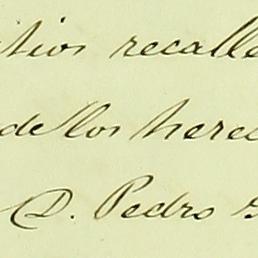 itios recalle
de los hered
D. Pedro